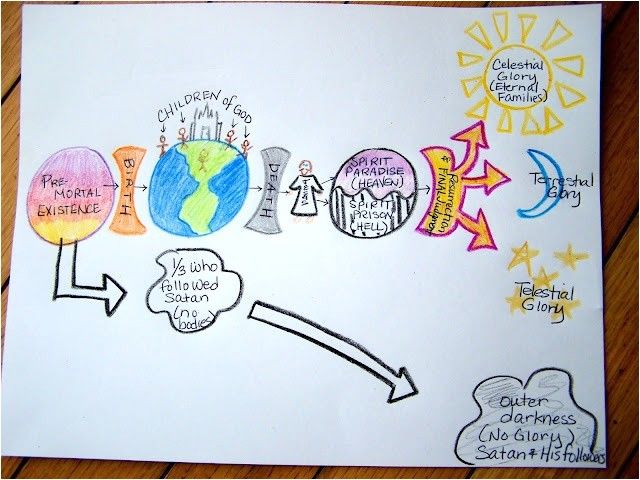 PRE-
MORTAL
EXISTENCE
BIRTH
CHILDREN of GOD
DEATH
SPIRIT
PARADISE
(HEAVEN)
SPIRIT
PRISON
(HELL)
Resurrection
& Final Judgment
Celestial
Glory
(Eternal
Families)
Terrestrial
Glory
Telestial
Glory
1/3 who
followed
Satan
(no
bodies)
outer
darkness
(No Glory)
Satan & His followers